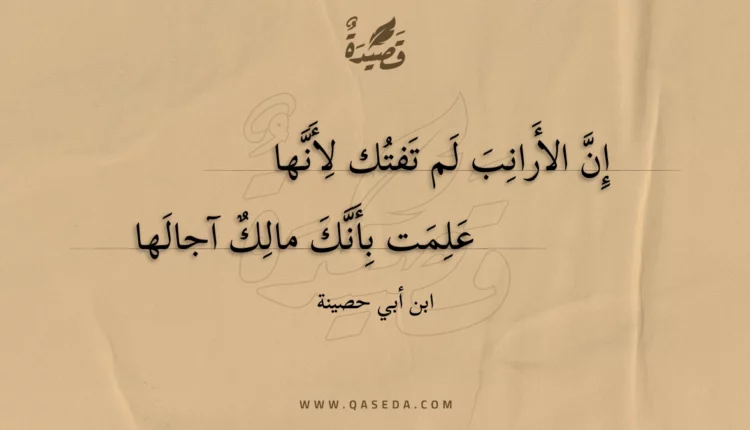 قَصِيْدَةٌ
إِنَّ الأَرانِبَ لَم تَفتُك لِأَنَّها
عَلِمَت بِأَنَّكَ مالِكٌ آجالَها
ابن أبي حصينة
WWW.QASEDA.COM